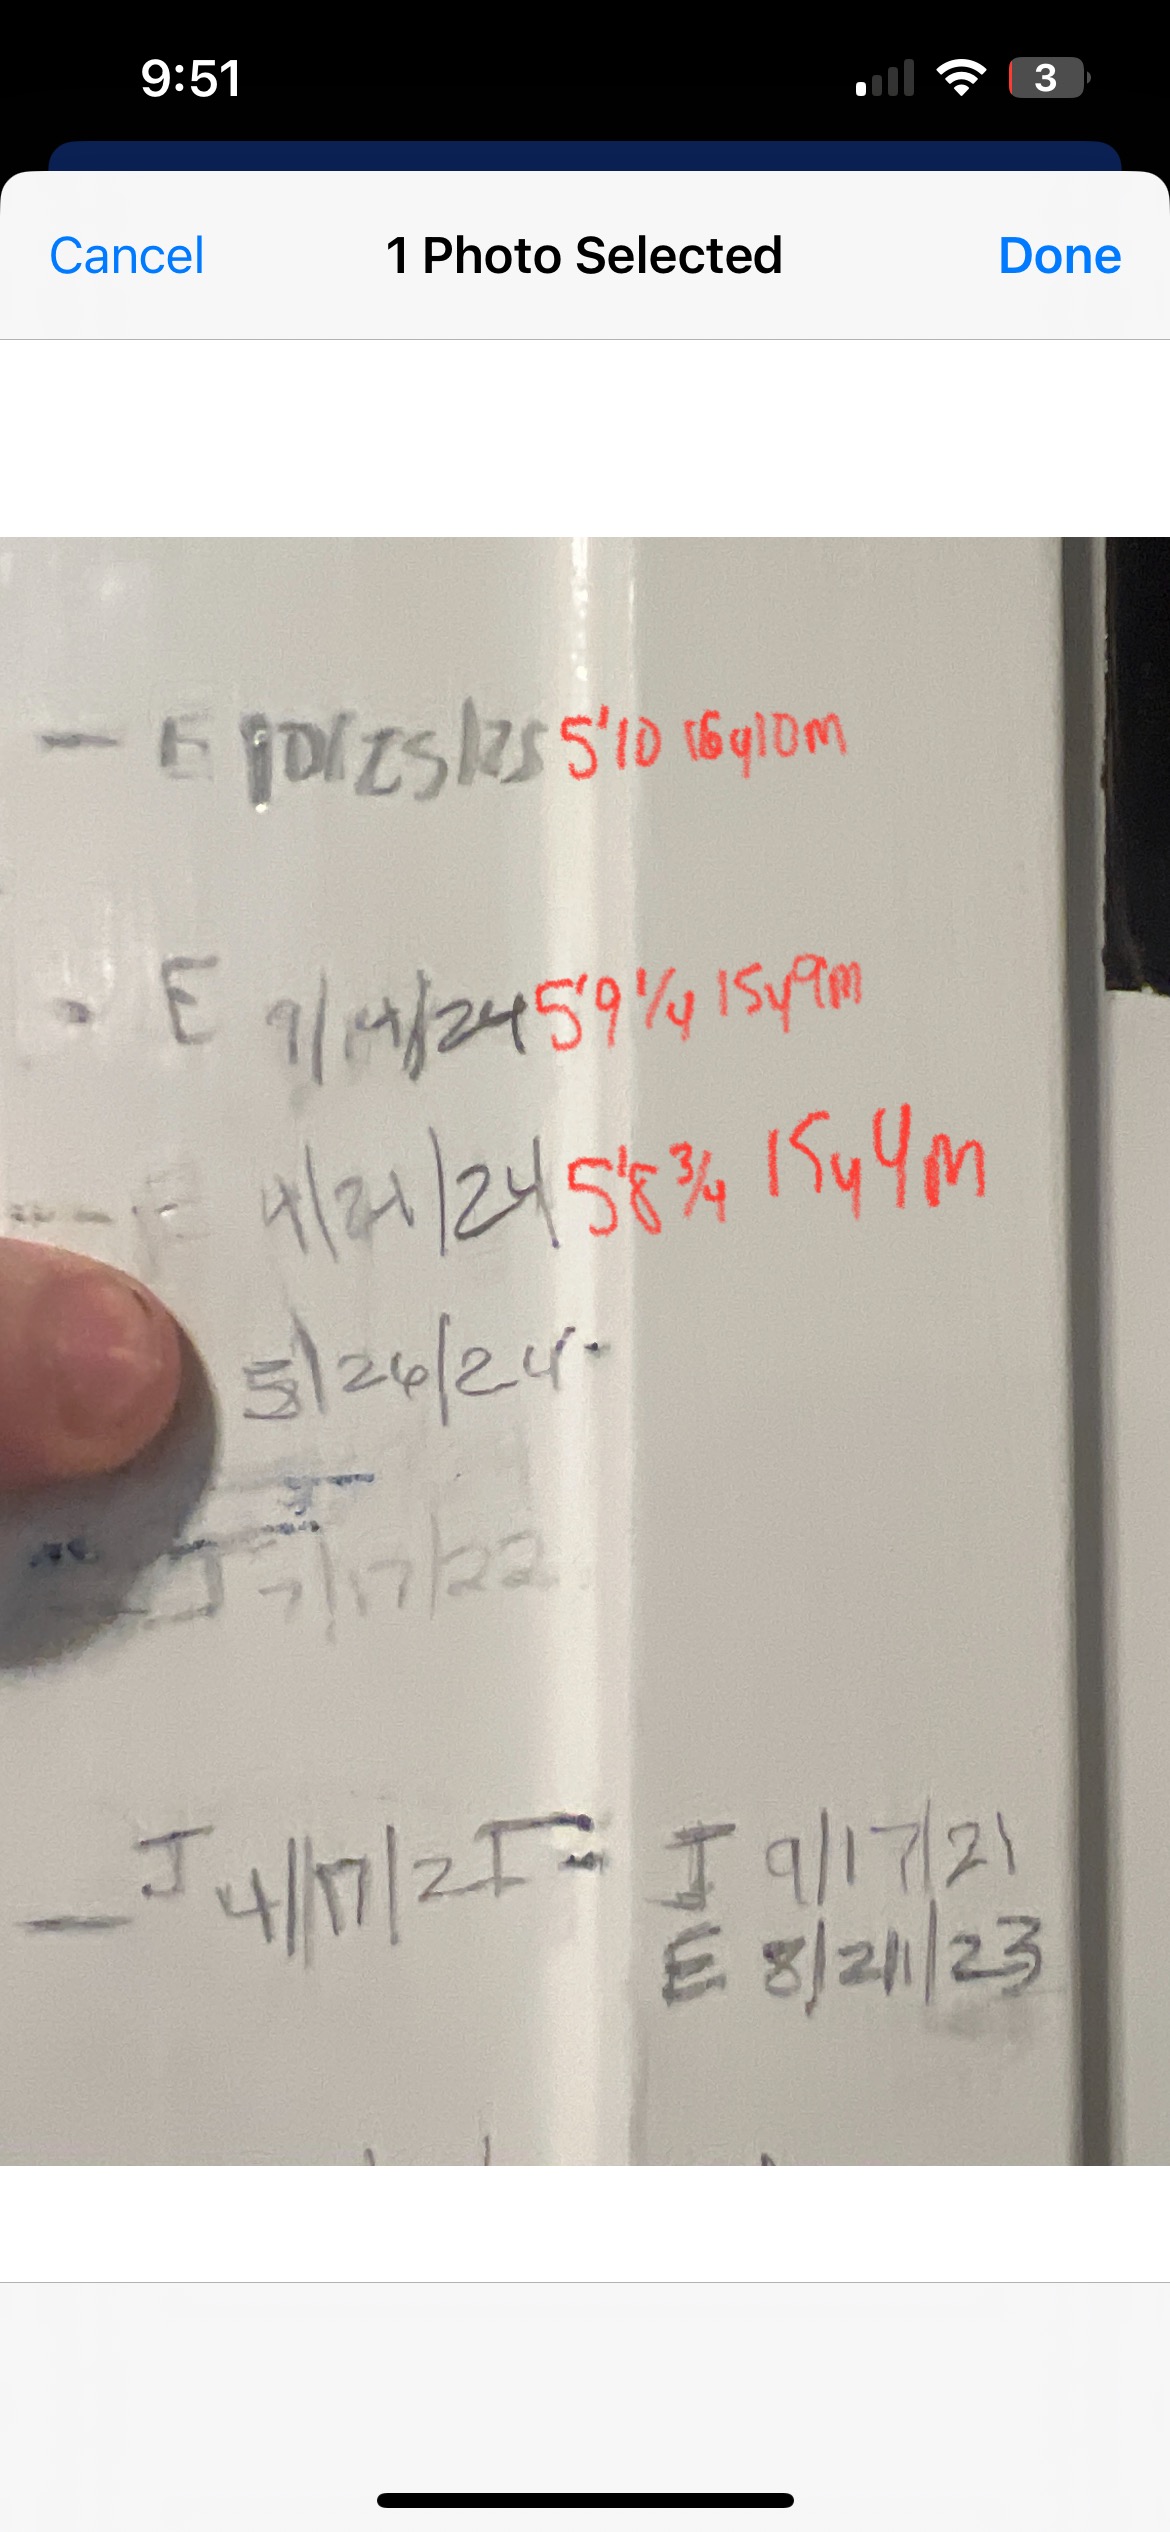 9:51
3
Cancel
1 Photo Selected
Done
E 10/25/25 5'10 16y10m
E 9/14/24 5'9 1/4 15y9m
E 4/21/24 5'8 3/4 15y4m
5/26/24
J 7/17/22
J 4/17/21
J 9/17/21
E 8/21/23